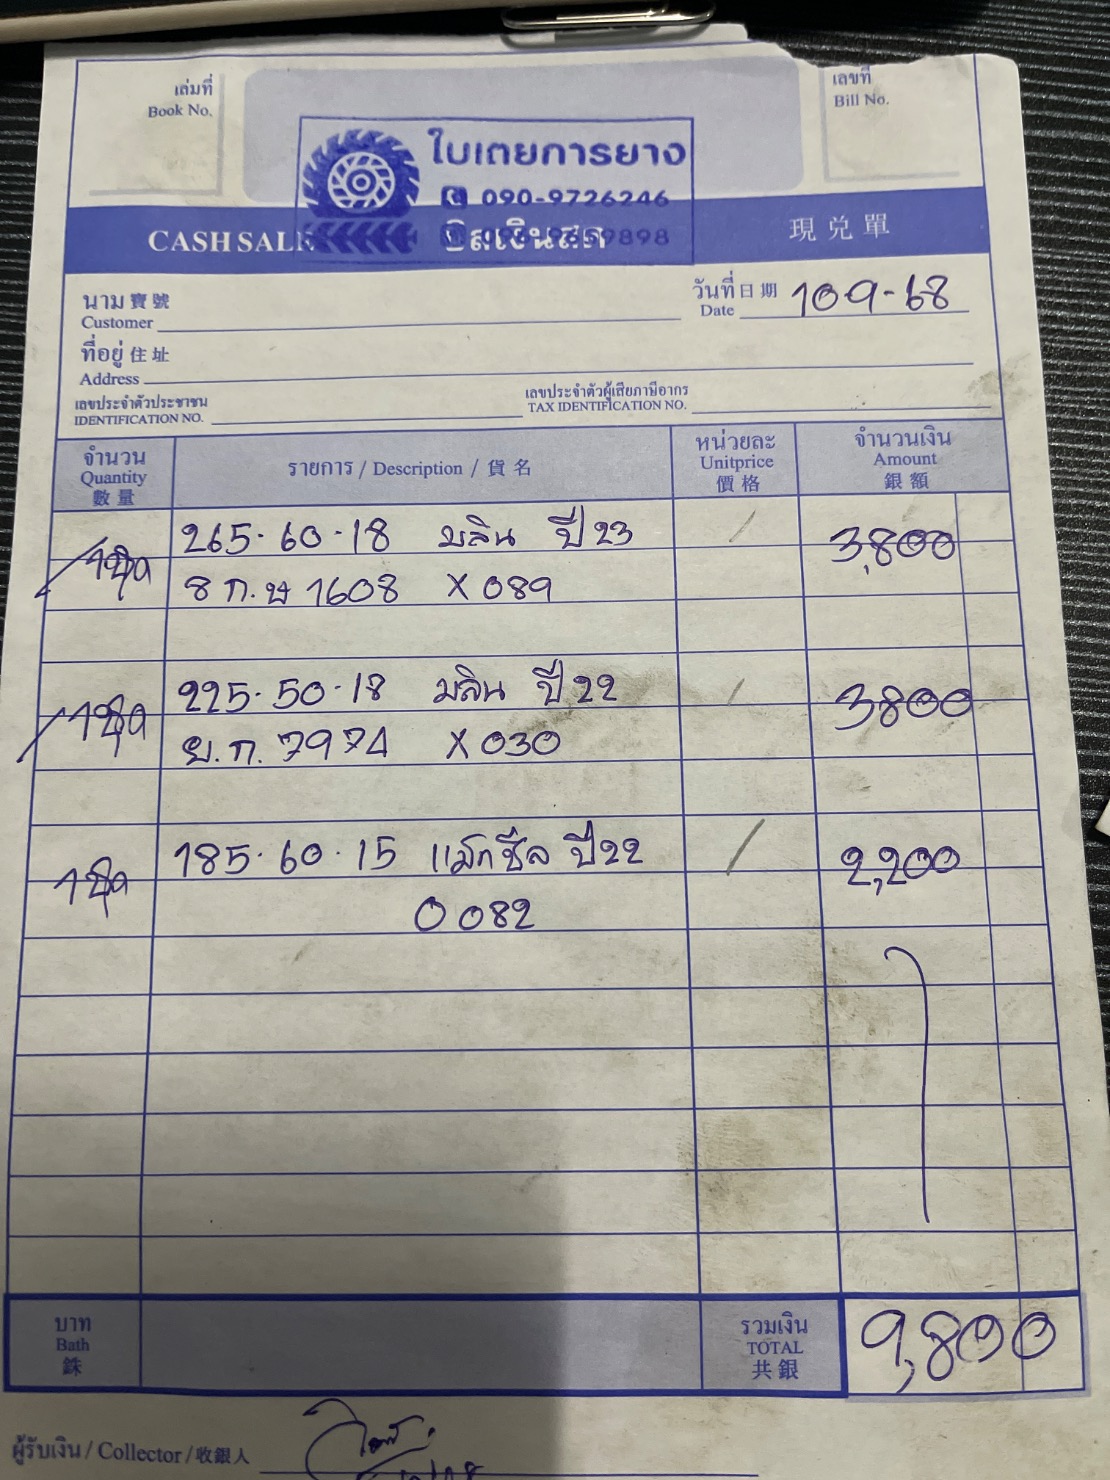 เล่มที่
Book No.
เลขที่
Bill No.
ใบเตยการยาง
090-9726246
9898
CASH SALE บิลเงินสด 現兌單
นาม寶號
Customer
วันที่日期 109-68
Date
ที่อยู่住址
Address
เลขประจำตัวประชาชน
IDENTIFICATION NO.
เลขประจำตัวผู้เสียภาษีอากร
TAX IDENTIFICATION NO.
จำนวน
Quantity
數量
รายการ / Description / 貨名
หน่วยละ
Unitprice
價格
จำนวนเงิน
Amount
銀額
1ชุด 265·60·18 มลิน ปี 23 / 3,800
8 ก.ษ 1608 X 089
1ชุด 225·50·18 มลิน ปี 22 / 3800
ย.ก. 7974 X 030
1ชุด 185·60·15 แม็กซีล ปี 22 / 2,200
0082
บาท
Bath
銖
รวมเงิน
TOTAL
共銀
9,800
ผู้รับเงิน / Collector / 收銀人